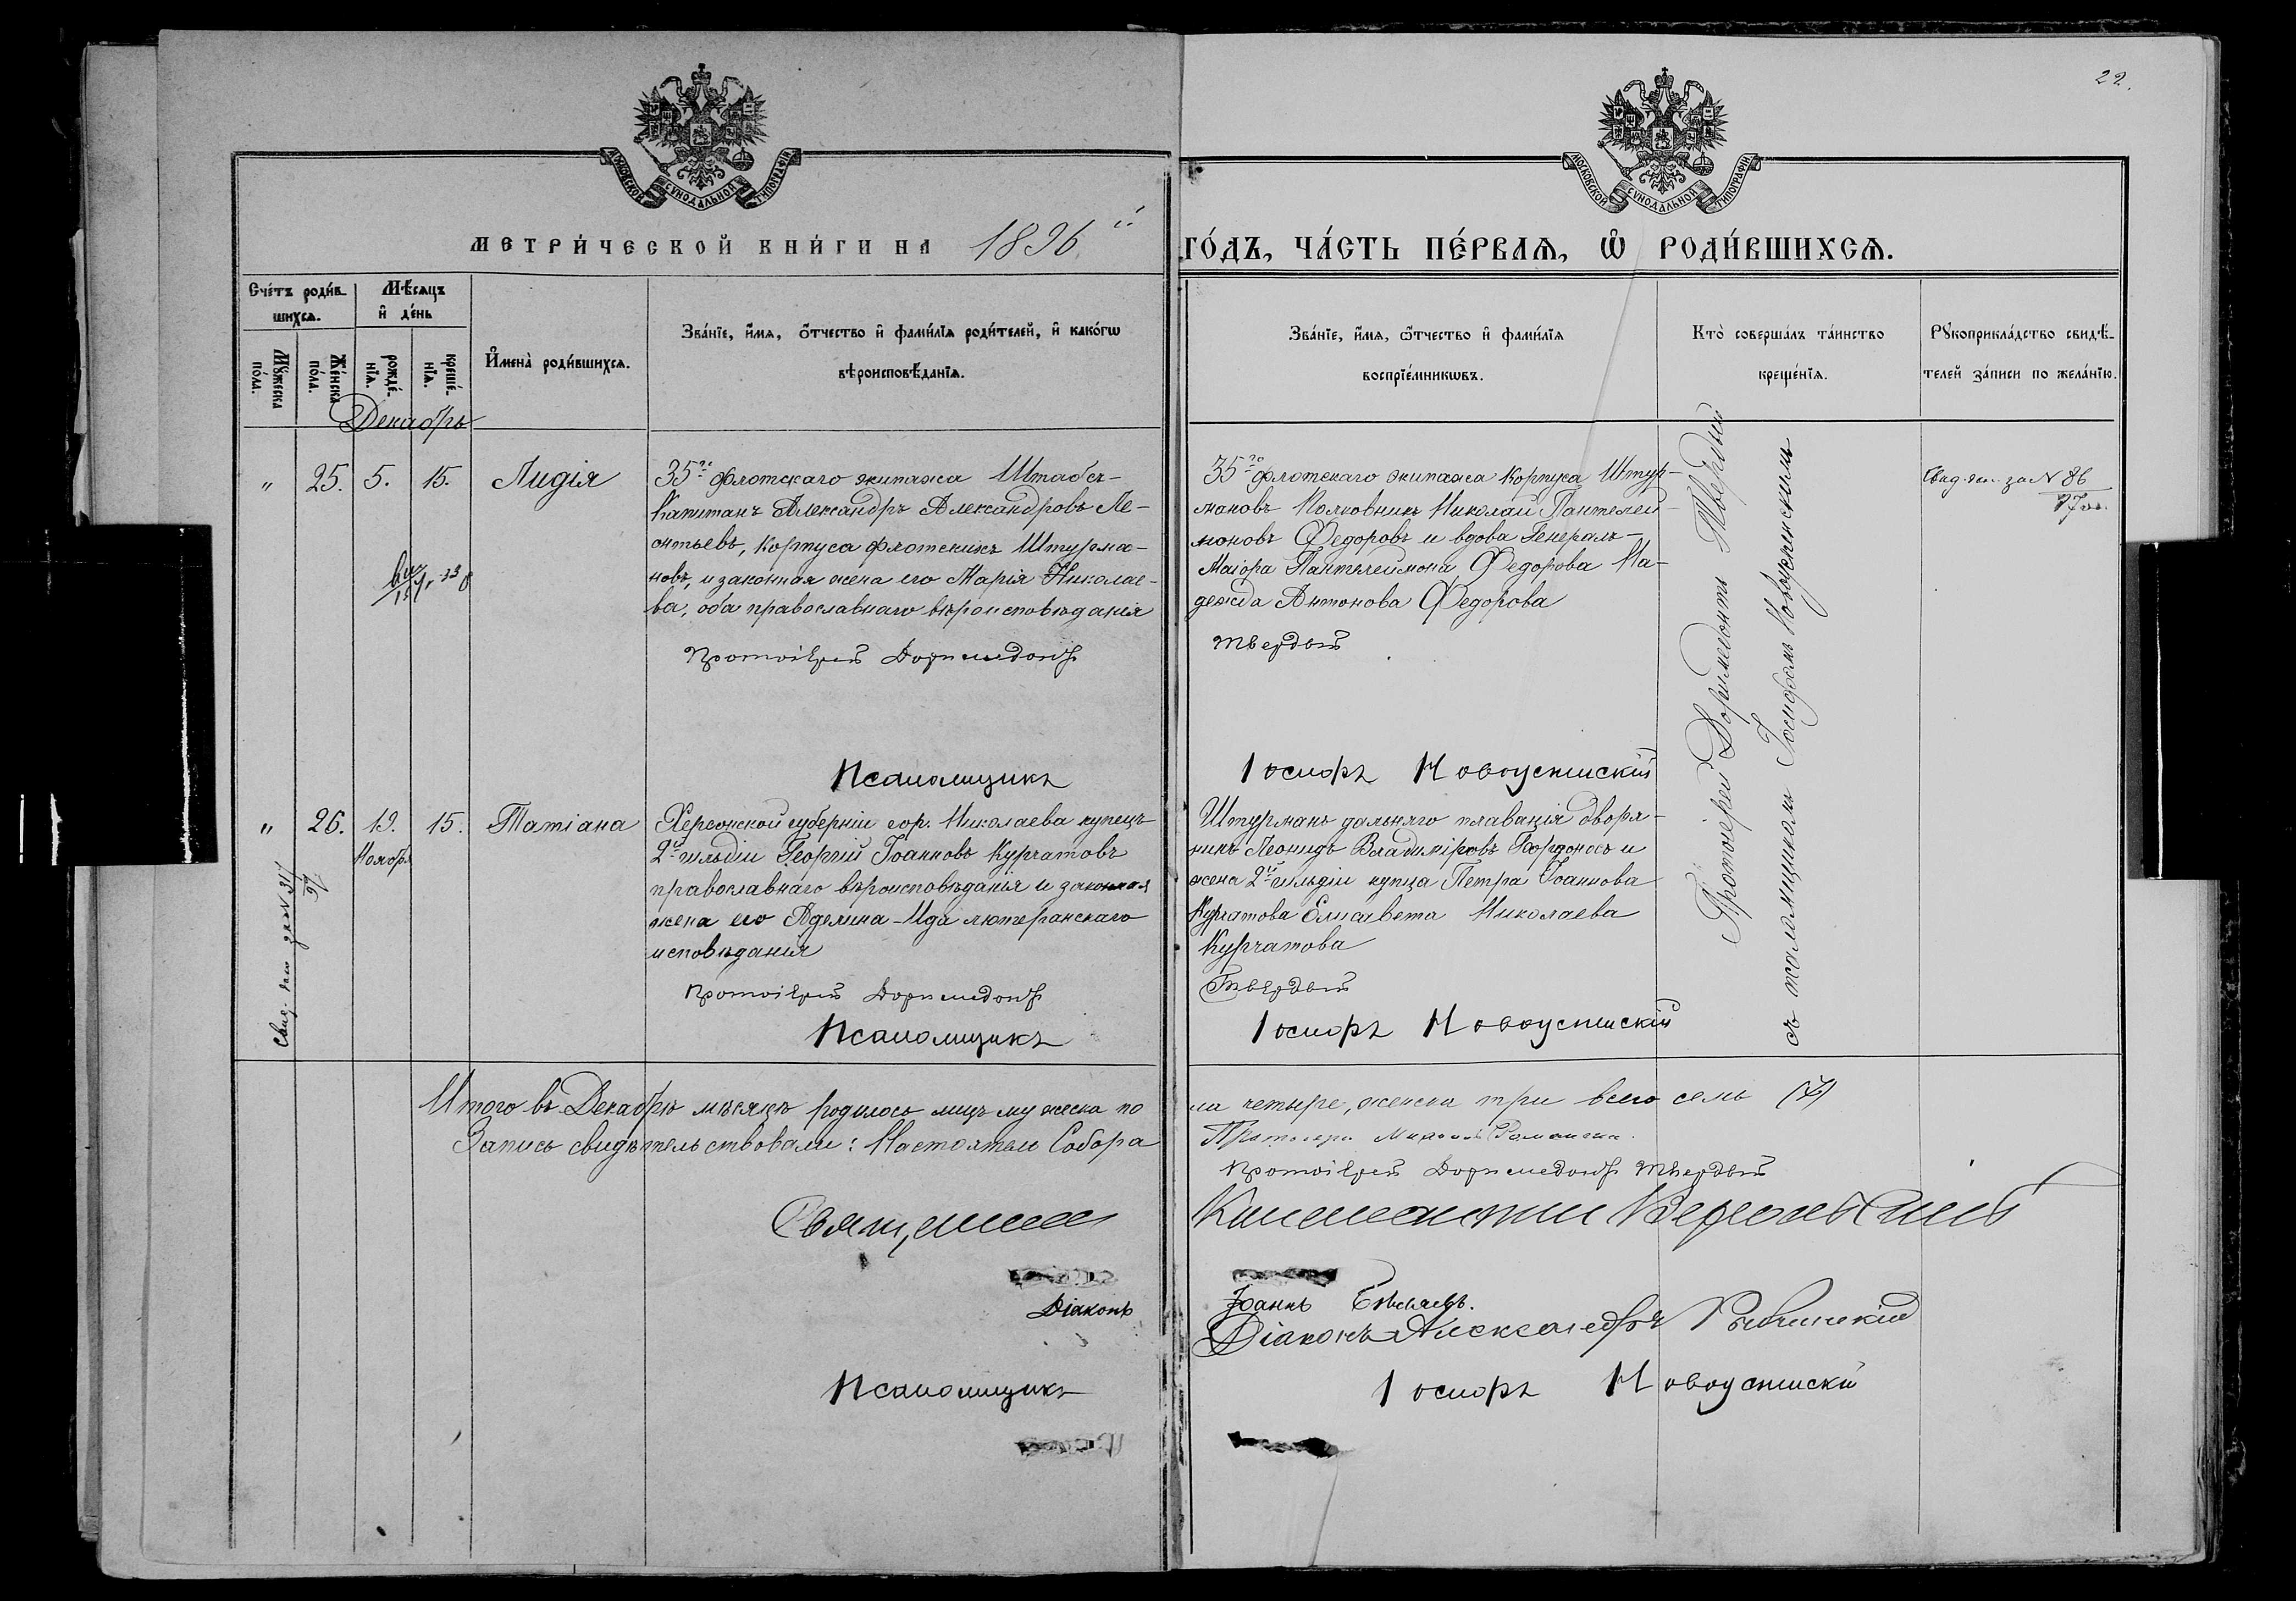 22.
МОСКОВСКОЙ СѴНОДАЛЬНОЙ ТИПОГРАФІИ
МОСКОВСКОЙ СѴНОДАЛЬНОЙ ТИПОГРАФІИ
МЕТРИ́ЧЕСКОЙ КНИ́ГИ НА 1896 й
ГО́ДЪ, ЧА́СТЬ ПЕ́РВАѦ, Ѡ҆ РОДИ́ВШИХСѦ.
Сче́тъ роди́в-
шихсѧ.
Мꙋ́жеска по́ла.
Же́нска по́ла.
Мѣ́сѧцъ
и҆ де́нь
рожде́-
нїѧ.
креще́-
нїѧ.
И҆мена̀ роди́вшихсѧ.
Зва́нїе, и҆́мѧ, ѻ҆́тчество и҆ фами́лїѧ роди́телей, и҆ како́гѡ
вѣроисповѣ́данїѧ.
Зва́нїе, и҆́мѧ, ѻ҆́тчество и҆ фами́лїѧ
воспрїе́мникѡвъ.
Кто̀ соверша́лъ та́инство
креще́нїѧ.
Рꙋкоприкла́дство свидѣ́-
телей за́писи по жела́нїю.
Декабрь
" 25. 5. 15. Лидія
35го флотскаго экипажа Штабсъ-
Капитанъ Александръ Александровъ Ле-
онтьевъ, Корпуса флотскихъ Штурма-
новъ, и законная жена его Марія Николае-
ва, оба православнаго вѣроисповѣданія
Протоіерей Доримедонтъ
Псаломщикъ
35го флотскаго экипажа Корпуса Штур-
мановъ Полковникъ Николай Пантелей-
моновъ Федоровъ и вдова Генералъ-
Маіора Пантелеймона Федорова На-
дежда Антонова Федорова
Твердый
Іосифъ Новоуспискій
Протоіерей Доримедонтъ Твердый
съ псаломщикомъ Іосифомъ Новоуспинскимъ
Свид. за N 86
" 26. 19. 15. Татіана
Ноябрь
Херсонской губерніи гор. Николаева купецъ
2й гильдіи Георгій Іоанновъ Курчатовъ
православнаго вѣроисповѣданія и законная
жена его Аделина-Ида лютеранскаго
исповѣданія
Протоіерей Доримедонтъ
Псаломщикъ
Штурманъ дальняго плаванія дворя-
нинъ Леонидъ Владиміровъ Гордоносъ и
жена 2й гильдіи купца Петра Іоаннова
Курчатова Елисавета Николаева
Курчатова
Твердый
Іосифъ Новоуспискій
Итого въ Декабрѣ мѣсяцѣ родилось лицъ мужеска по
ла четыре, женска три всего семь (7)
Запись свидѣтельствовали: Настоятель Собора
Протоіерей
Протоіерей Доримедонтъ Твердый
Священникъ
Діаконъ
Іоаннъ
Діаконъ Александръ
Псаломщикъ
Іосифъ Новоуспискій